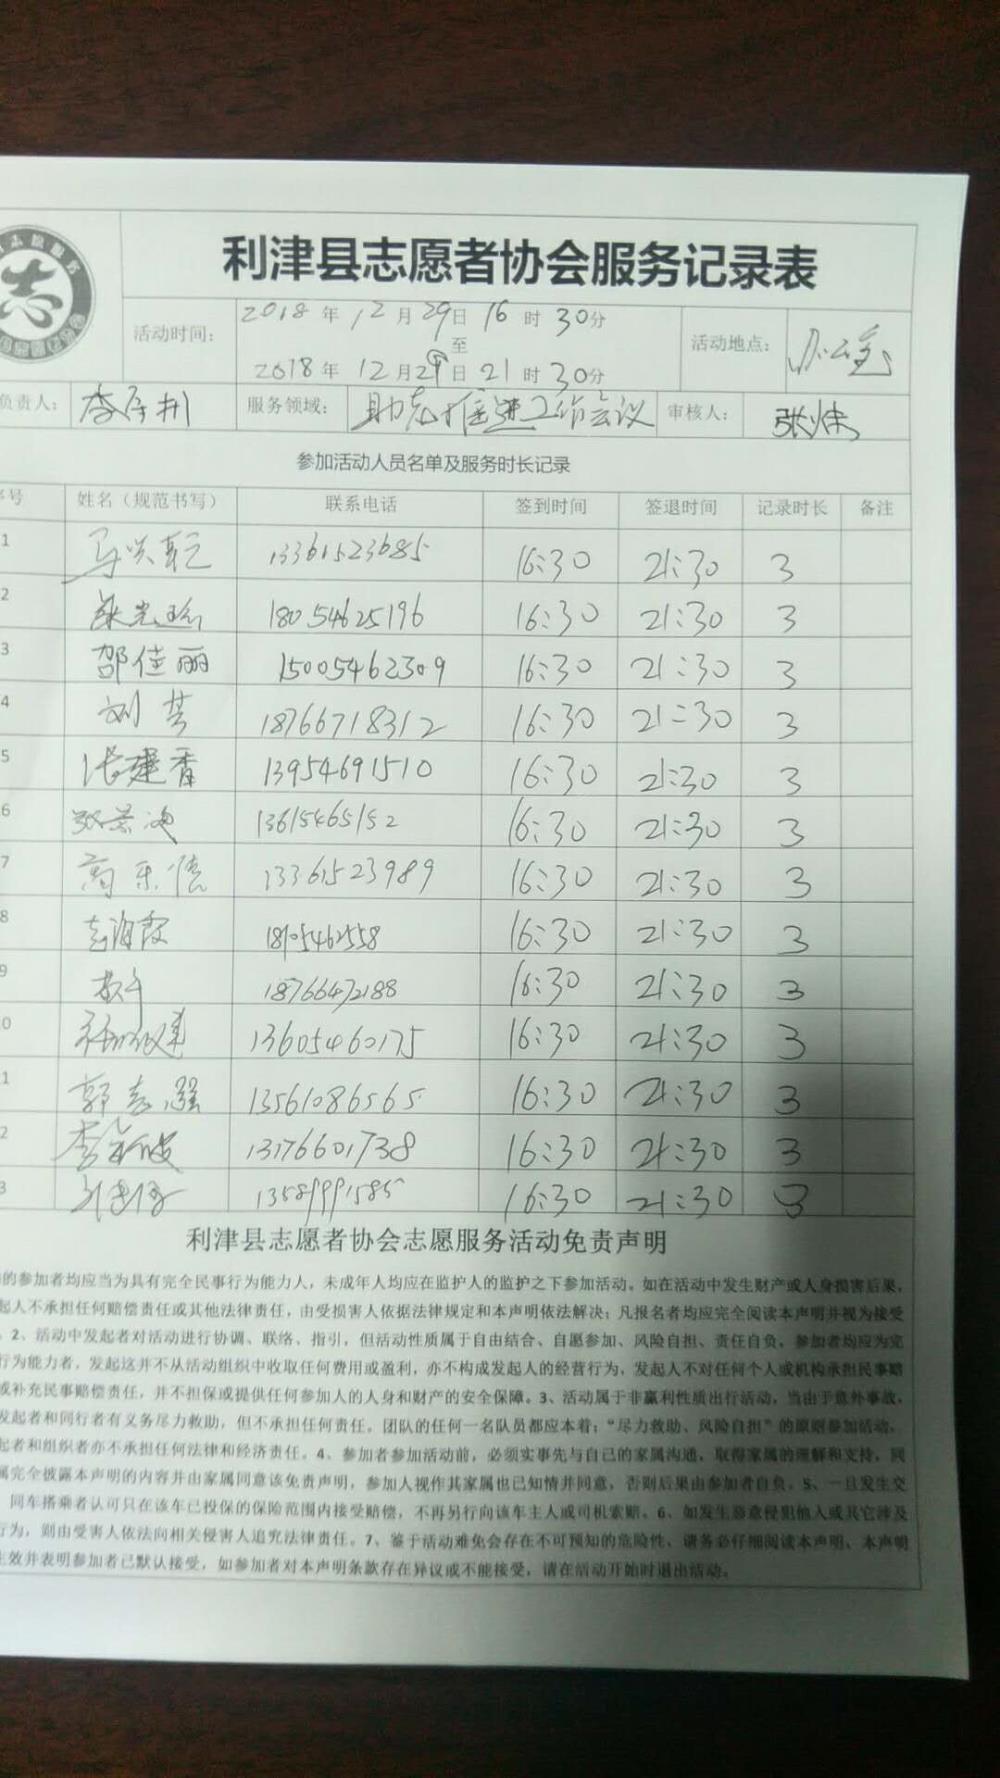 利津县志愿者协会服务记录表
活动时间: 2018年12月29日16时30分
至
2018年12月29日21时30分
活动地点: 办公室
负责人: 服务领域: 助志推进工作会议 审核人:
参加活动人员名单及服务时长记录
序号 姓名（规范书写） 联系电话 签到时间 签退时间 记录时长 备注
1 13361523685 16:30 21:30 3
2 18054625196 16:30 21:30 3
3 邵佳丽 15005462309 16:30 21:30 3
4 刘芳 18766718312 16:30 21:30 3
5 张建香 13954691510 16:30 21:30 3
6 13615465152 16:30 21:30 3
7 高乐德 13361523989 16:30 21:30 3
8 海霞 18105462558 16:30 21:30 3
9 18766472188 16:30 21:30 3
0 13605460175 16:30 21:30 3
1 郭志强 13561086565 16:30 21:30 3
2 13176601738 16:30 21:30 3
3 13589991585 16:30 21:30 3
利津县志愿者协会志愿服务活动免责声明
的参加者均应当为具有完全民事行为能力人，未成年人均应在监护人的监护之下参加活动。如在活动中发生财产或人身损害后果，
起人不承担任何赔偿责任或其他法律责任，由受损害人依据法律规定和本声明依法解决；凡报名者均应完全阅读本声明并视为接受
。2、活动中发起者对活动进行协调、联络、指引，但活动性质属于自由结合、自愿参加、风险自担、责任自负。参加者均应为完
行为能力者，发起这并不从活动组织中收取任何费用或盈利，亦不构成发起人的经营行为，发起人不对任何个人或机构承担民事赔
或补充民事赔偿责任，并不担保或提供任何参加人的人身和财产的安全保障。3、活动属于非赢利性质出行活动，当由于意外事故，
发起者和同行者有义务尽力救助，但不承担任何责任。团队的任何一名队员都应本着：“尽力救助、风险自担”的原则参加活动，
起者和组织者亦不承担任何法律和经济责任。4、参加者参加活动前，必须实事先与自己的家属沟通，取得家属的理解和支持，同
属完全披露本声明的内容并由家属同意该免责声明，参加人视作其家属也已知情并同意，否则后果由参加者自负。5、一旦发生交
同车搭乘者认可只在该车已投保的保险范围内接受赔偿，不再另行向该车主人或司机索赔。6、如发生恶意侵犯他人或其它涉及
行为，则由受害人依法向相关侵害人追究法律责任。7、鉴于活动难免会存在不可预知的危险性，请务必仔细阅读本声明、本声明
生效并表明参加者已默认接受，如参加者对本声明条款存在异议或不能接受，请在活动开始时退出活动。